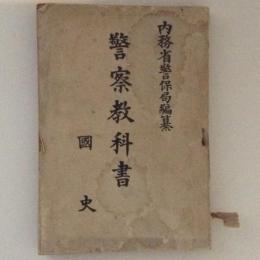 內務省警保局編纂
警察教科書
國史